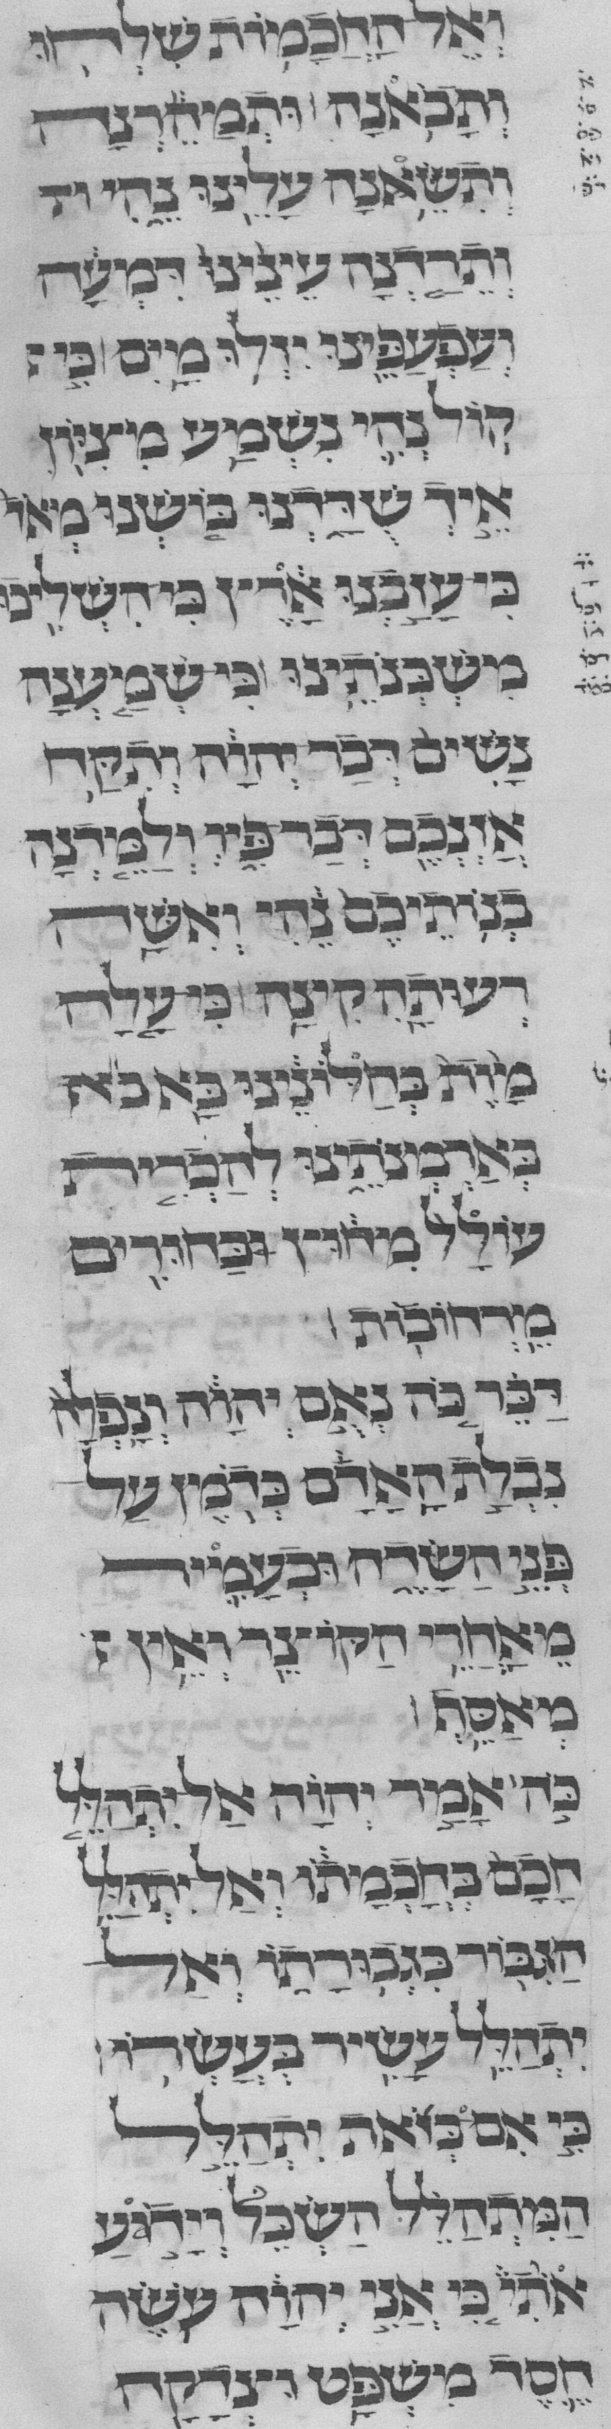 וְאֶל הַחֲכָמ֥וֹת שִׁלְח֖וּ
וְתָבֹֽאנָה וּתְמַהֵ֕רְנָה
וְתִשֶּׂ֥אנָה עָלֵ֖ינוּ נֶ֑הִי
וְתֵרַ֤דְנָה עֵינֵ֙ינוּ֙ דִּמְעָ֔ה
וְעַפְעַפֵּ֖ינוּ יִזְּלוּ מָֽיִם כִּ֣י
ק֥וֹל נְהִ֛י נִשְׁמַ֥ע מִצִּיּ֖וֹן
אֵ֣יךְ שֻׁדָּ֑דְנוּ בֹּ֤שְׁנֽוּ מְאֹד֙
כִּי עָזַ֣בְנוּ אָ֔רֶץ כִּ֥י הִשְׁלִ֖יכוּ
מִשְׁכְּנוֹתֵֽינוּ כִּי שְׁמַ֤עְנָה
נָשִׁים֙ דְּבַר יְהוָ֔ה וְתִקַּ֥ח
אָזְנְכֶ֖ם דְּבַר פִּ֑יו וְלַמֵּ֤דְנָה
בְנֽוֹתֵיכֶם֙ נֶ֔הִי וְאִשָּׁ֥ה
רְעוּתָ֖הּ קִינָֽה כִּֽי עָ֤לָה
מָ֙וֶת֙ בְּחַלּוֹנֵ֔ינוּ בָּ֖א
בְּאַרְמְנוֹתֵ֑ינוּ לְהַכְרִ֤ית
עוֹלָל֙ מִח֔וּץ וּבַחוּרִ֖ים
מֵרְחֹבֽוֹת
דַּבֵּ֗ר כֹּ֚ה נְאֻם יְהוָ֔ה וְנָֽפְלָה֙
נִבְלַ֣ת הָאָדָ֔ם כְּדֹ֖מֶן עַל
פְּנֵ֣י הַשָּׂדֶ֑ה וּכְעָמִ֛יר
מֵאַחֲרֵ֥י הַקּוֹצֵ֖ר וְאֵ֥ין
מְאַסֵּֽף
כֹּ֣ה אָמַ֣ר יְהוָ֗ה אַל יִתְהַלֵּ֤ל
חָכָם֙ בְּחָכְמָת֔וֹ וְאַל יִתְהַלֵּ֥ל
הַגִּבּ֖וֹר בִּגְבֽוּרָת֑וֹ וְאַל
יִתְהַלֵּ֥ל עָשִׁ֖יר בְּעָשְׁרֽוֹ
כִּ֣י אִם בְּזֹ֞את יִתְהַלֵּ֣ל
הַמִּתְהַלֵּ֗ל הַשְׂכֵּל֮ וְיָדֹ֣עַ
אוֹתִי֒ כִּ֚י אֲנִ֣י יְהוָ֔ה עֹ֥שֶׂה
חֶ֛סֶד מִשְׁפָּ֥ט וּצְדָקָ֖ה